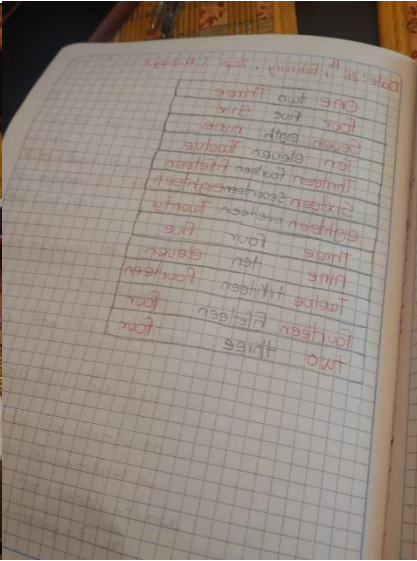 Date: February, 2021
One two Three
four five Six
Seven eigth nine
Ten eleven Twelve
Thirteen fourteen Fifeteen
Sixteen seventeen eighteen
eighteen nineteen Twenty
Three four five
nine ten eleven
Twelve thirteen fourteen
fourteen Fifeteen four
two three four